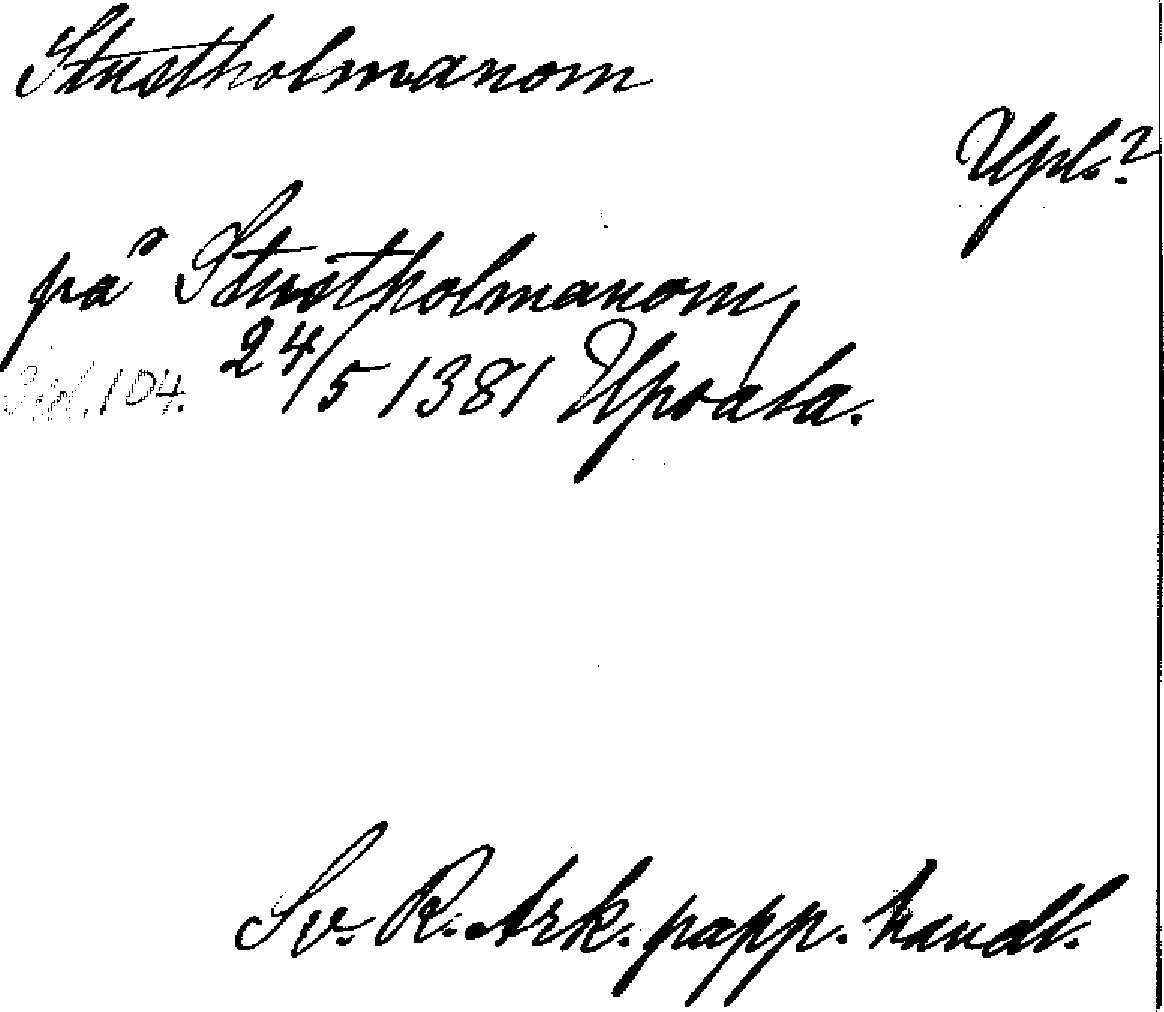 Stustholmanom
Upl.?
på Stustholmanom,
24/5 1381 Upsala.
104.
Sv. R. Ark. papp. handl.